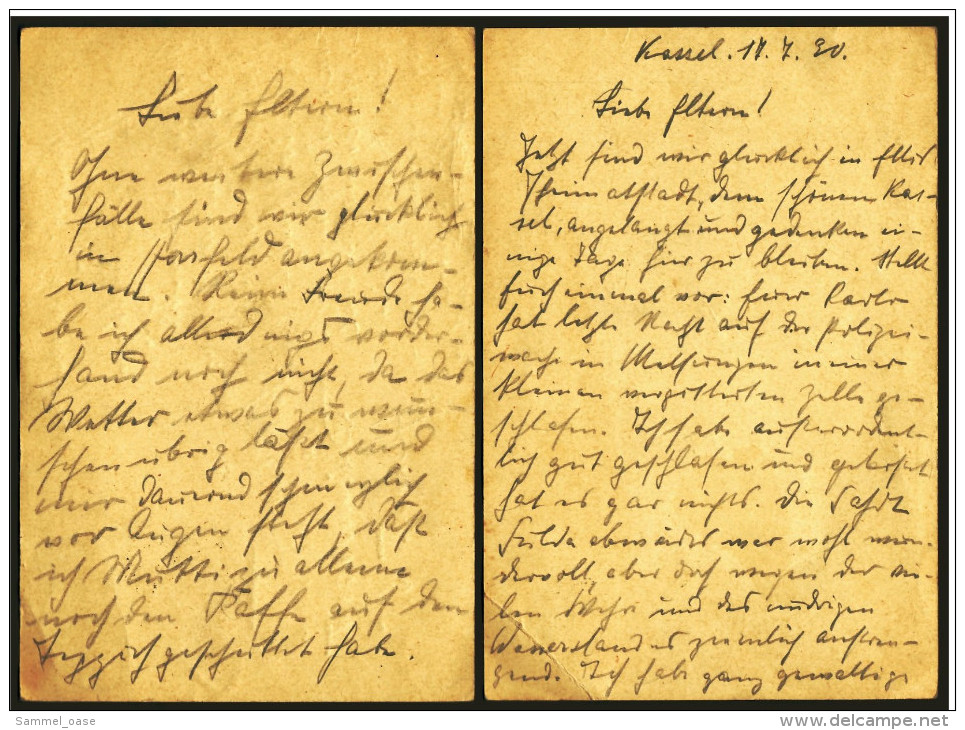 Liebe Eltern!
Ohne weitere Zwischen-
fälle sind wir glücklich
in Hersfeld angekom-
men. Keine Freude ha-
be ich allerdings vorder-
hand noch nicht, da das
Wetter etwas zu wün-
schen übrig läßt und
mir dauernd schmerzlich
vor Augen steht, daß
ich Mutti zu alleine
noch den Kaffe auf den
Teppich geschüttet habe.
Kassel. 17.7.30.
Liebe Eltern!
Jetzt sind wir glücklich in
Heimatstadt, dem schönen Kas-
sel, angelangt und gedenken ei-
nige Tage hier zu bleiben. Stellt
Euch einmal vor: Euer
hat letzte Nacht auf der Polizei-
wache in Melsungen in einer
kleinen vergitterten Zelle ge-
schlafen. Ich habe außerordent-
lich gut geschlafen und gekostet
hat es gar nichts. Die Fahrt
Fulda abwärts war wohl wun-
dervoll, aber doch wegen der vie-
len Wehre und des niedrigen
Wasserstandes ziemlich anstren-
gend. Ich habe ganz gewaltige
Sammel_oase
delcampe.net